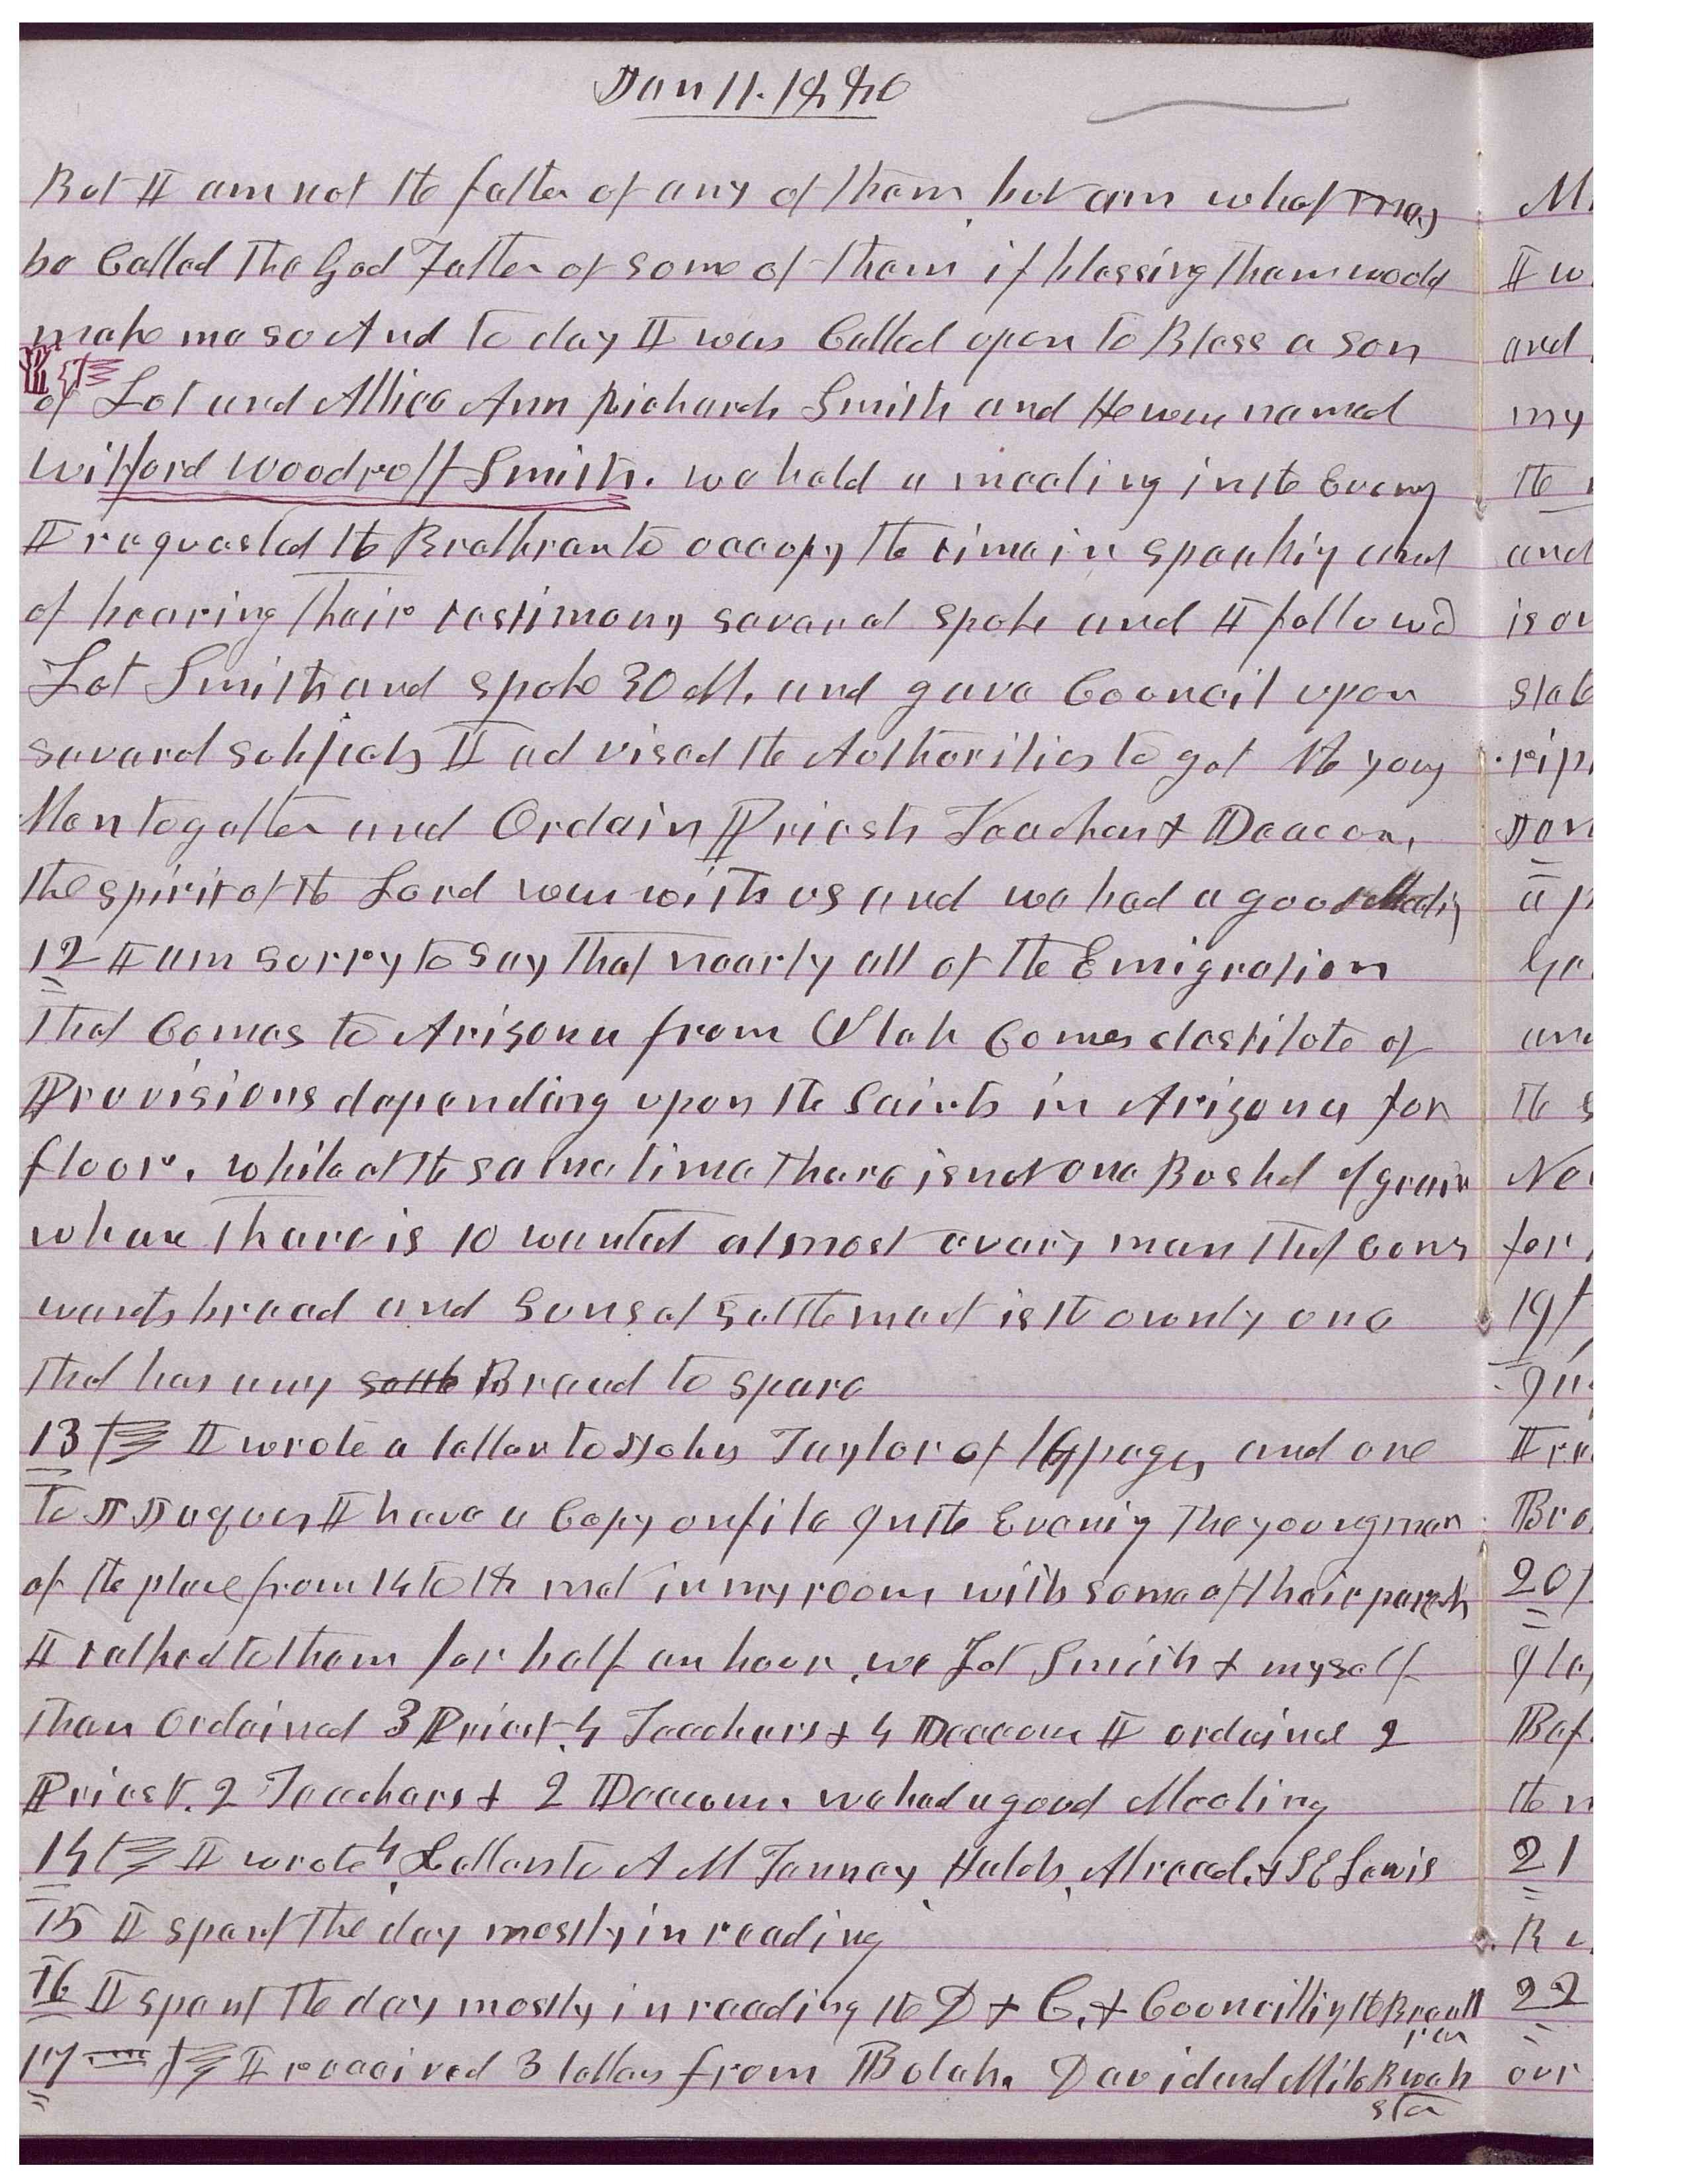 Jan 11. 1880
But I am not the father of any of them, but am what may
be Called the God Father of some of them if blessing them would
make me so And to day I was Called upon to Bless a son
of Lot and Allice Ann Richards Smith and He was named
Wilford Woodruff Smith. we held a meeting in the Eveng
I requested the Brethren to occupy the time in speaking and
of bearing their testimony several spoke and I followd
Lot Smith and spoke 30 M. and gave Council upon
several subjects I advised the Authorities to get the young
Men together and Ordain Priests Teachers & Deacons,
the spirit of the Lord was with us and we had a good Meeting
12 I am sorry to say that nearly all of the Emigration
that Comes to Arizona from Utah Comes destitute of
Provisions depending upon the Saints in Arizona for
flour. while at the same time there is not one Bushel of grain
whare thare is 10 wanted almost every man that coms
wants bread and Sunset settlement is the ownly one
that has any settle Bread to spare
13 I wrote a letter to John Taylor of 16 pages, and one
to J Jaques I have a Copy on file In the Evening The young men
of the place from 14 to 18 met in my room with some of their parents
I talked to them for half an hour, we Lot Smith & myself
than Ordained 3 Priest. 4 Teachers & 4 Deacons I ordained 2
Priest. 2 Teachers & 2 Deacons. we had a good Meeting
14 I wrote 4 Letters to A M Tenney, Hatch, Alread. & S E Lewis
15 I spent the day mostly in reading
16 I spent the day mostly in reading the D & C. & Councilling the Breth
ren
17 I received 3 letters from Bulah. David and Mile